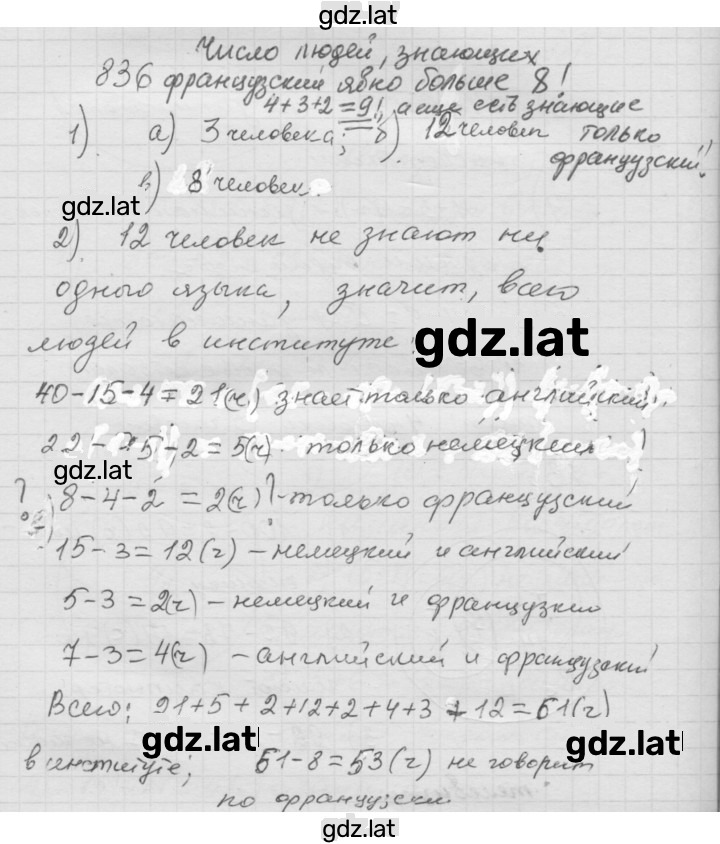 gdz.lat
Число людей, знающих
836 французский явно больше 8!
4+3+2=9!, а еще есть знающие
1) а) 3 человека; б) 12 человек только
французский!
в) 8 человек.
gdz.lat
2) 12 человек не знают ни
одного языка, значит, всего
людей в институте:
gdz.lat
40-15-4=21(ч) знает только английский.
22-15-2=5(ч) - только немецкий
gdz.lat
? 8-4-2=2(ч)?-только французский
15-3=12(ч) - немецкий и английский
5-3=2(ч) - немецкий и французкий
7-3=4(ч) - английский и французский
Всего: 21+5+2+12+2+4+3+12=61(ч)
gdz.lat
gdz.lat
в институте; 61-8=53(ч) не говорит
по французски
gdz.lat